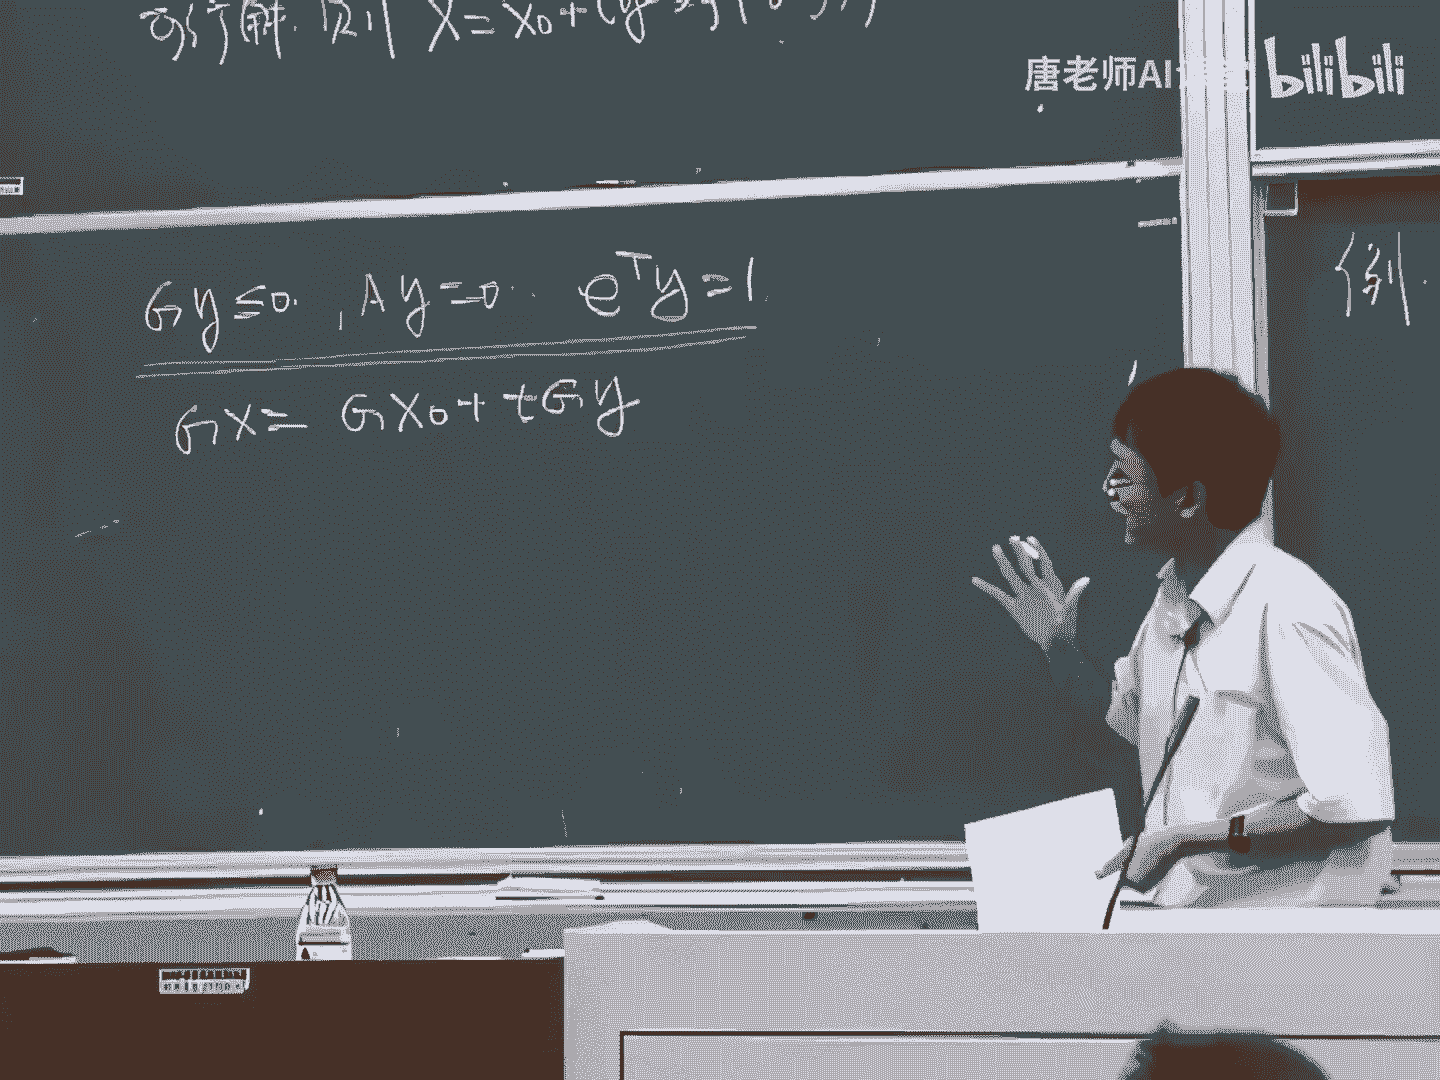 可行解. 则 X = x₀ + ty
唐老师AI
bilibili
Gy ≤ 0. , Ay = 0. eᵀy = 1.
例.
GX = Gx₀ + tGy